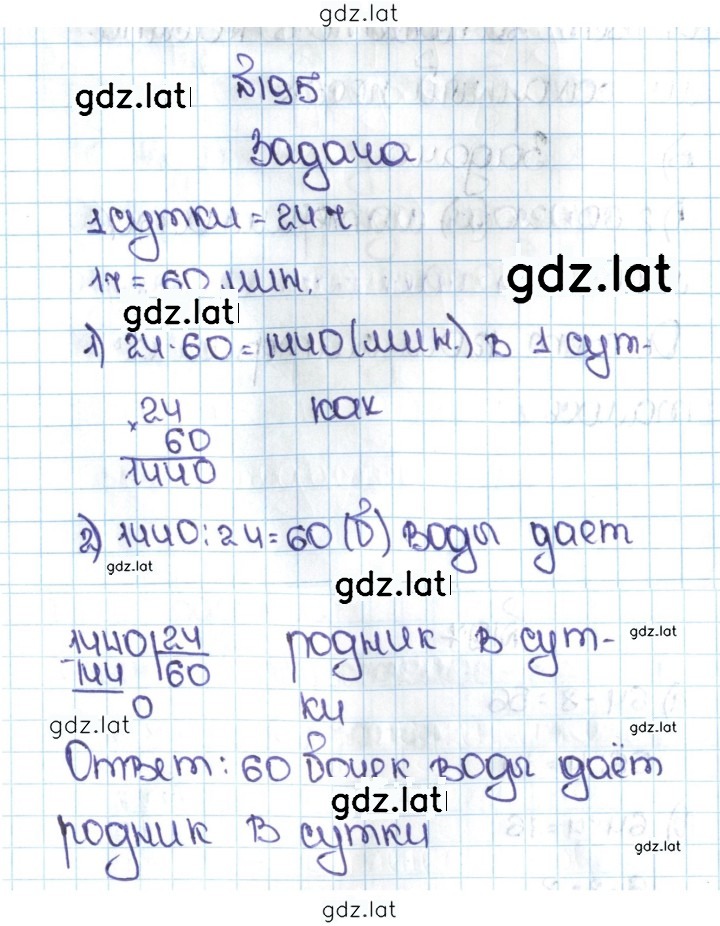 gdz.lat
gdz.lat №195
Задача
1 сутки = 24 ч
1ч = 60 мин. gdz.lat
gdz.lat
1) 24·60=1440(мин.) в 1 сут-
×24 как
60
1440
2) 1440:24=60 (б) воды дает
gdz.lat gdz.lat
1440|24 родник в сут- gdz.lat
-144 |60
0 ки
gdz.lat gdz.lat
Ответ: 60 бочек воды даёт
gdz.lat
родник в сутки gdz.lat
gdz.lat